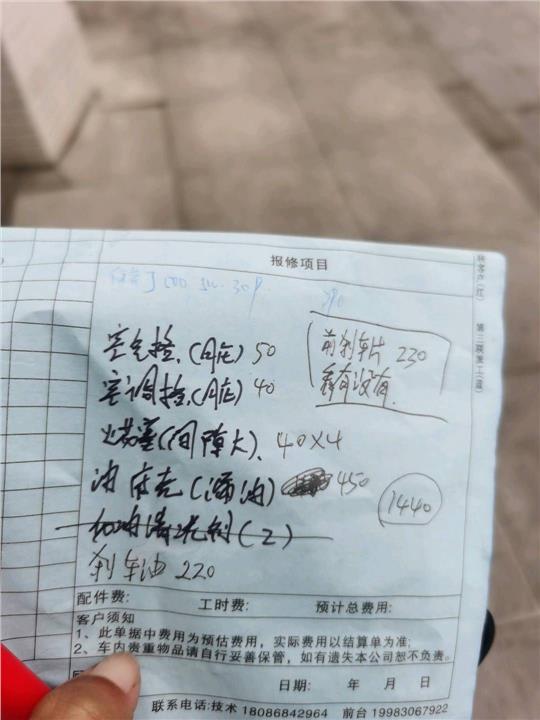 报修项目
空气格.(月E) 50
空调格.(月E) 40
火花塞(间隙大). 40×4
油底壳(漏油) 450
机油清洗剂(2)
刹车油 220
前刹车片 230
看有没有.
1440
配件费: 工时费: 预计总费用:
客户须知
1、此单据中费用为预估费用，实际费用以结算单为准;
2、车内贵重物品请自行妥善保管，如有遗失本公司恕不负责。
日期: 年 月 日
联系电话:技术 18086842964 前台 19983067922